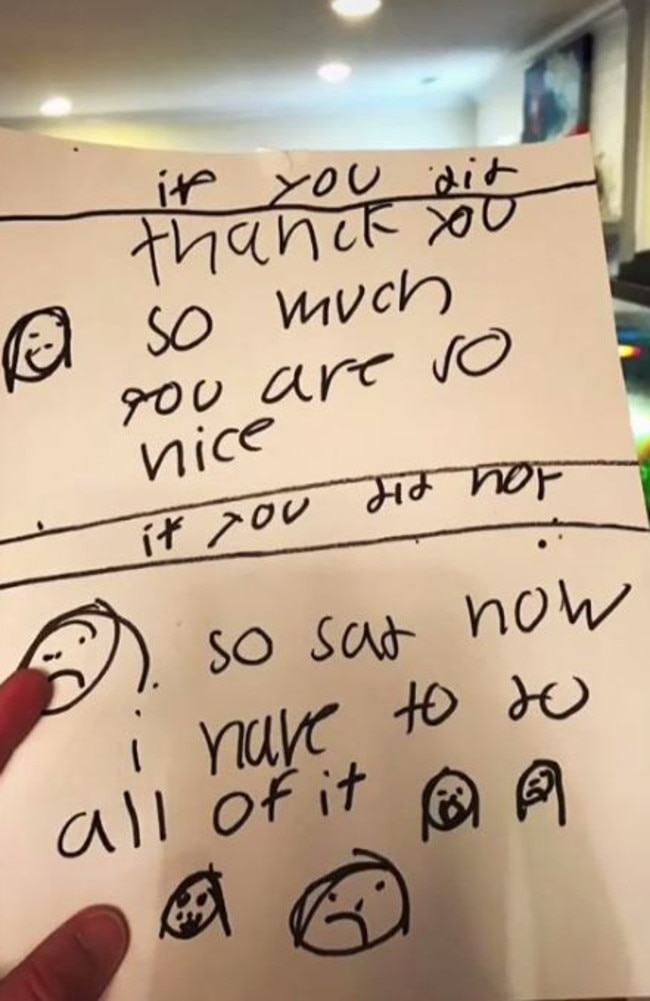 if you did
thanck you
so much
you are so
nice
if you did not
so sad now
i have to do
all of it